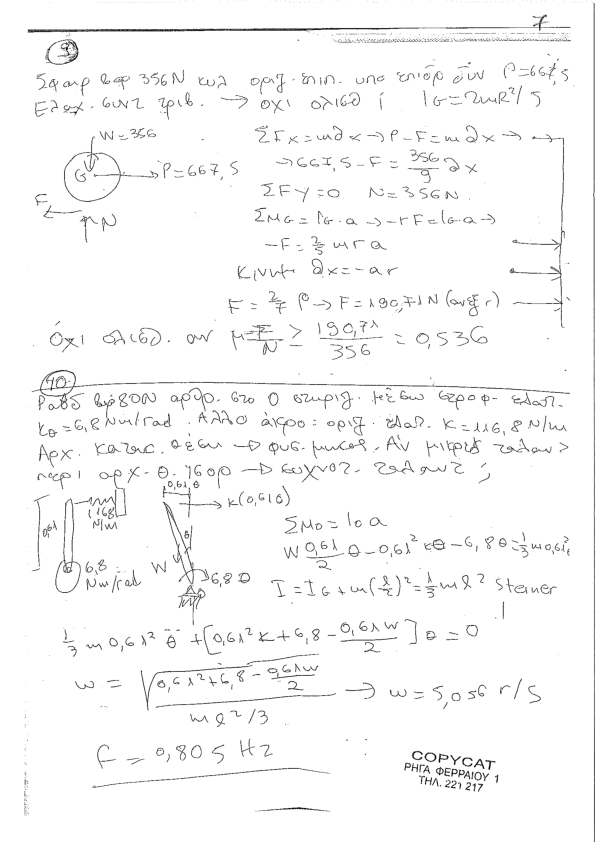 7
9
Σφαιρ βαρ 356N κυλ οριζ. επιπ. υπο επιδρ δύν P=667,5
Ελαχ. συντ τριβ. → οχι ολισθ ; IG=2mR²/5
W=356
G
P=667,5
F
N
ΣFx=m∂x → P-F=m∂x →
→ 667,5-F = 356/9 ∂x
ΣFy=0 N=356N
ΣMG=IG·a → -rF=IG·a →
-F = 2/5 m r a
Κινητ ∂x=-ar
F = 2/7 P → F=190,71N (ανεξ r)
Όχι ολισθ. αν μ=F/N ≥ 190,71/356 = 0,536
10
Ραβδ βαρ 80N αρθρ. στο O στηριζ. μέσω στροφ- ελατ.
Kθ=6,8 Nm/rad. Αλλο άκρο: οριζ. ελατ. K=116,8 N/m
Αρχ. κατασ. θέση → φυσ. μηκος. Αν μικρές ταλαν>
περι αρχ. θ. ισορ → συχνοτ. ταλαντ ;
0,61
1168 N/m
6,8 Nm/rad
0,61θ
K(0,61θ)
θ
W
6,8θ
ΣMO=IO a
W 0,61/2 θ - 0,61² κθ - 6,8θ = 1/3 m 0,61²
I = IG + m(ℓ/2)² = 1/3 mℓ² Steiner
1/3 m 0,61² θ̈ + [0,61² K + 6,8 - 0,61W/2] θ = 0
w = √(0,61²+6,8 - 0,61w/2)/(mℓ²/3) → w=5,056 r/s
f = 0,805 Hz
COPYCAT
ΡΗΓΑ ΦΕΡΡΑΙΟΥ 1
ΤΗΛ. 221 217